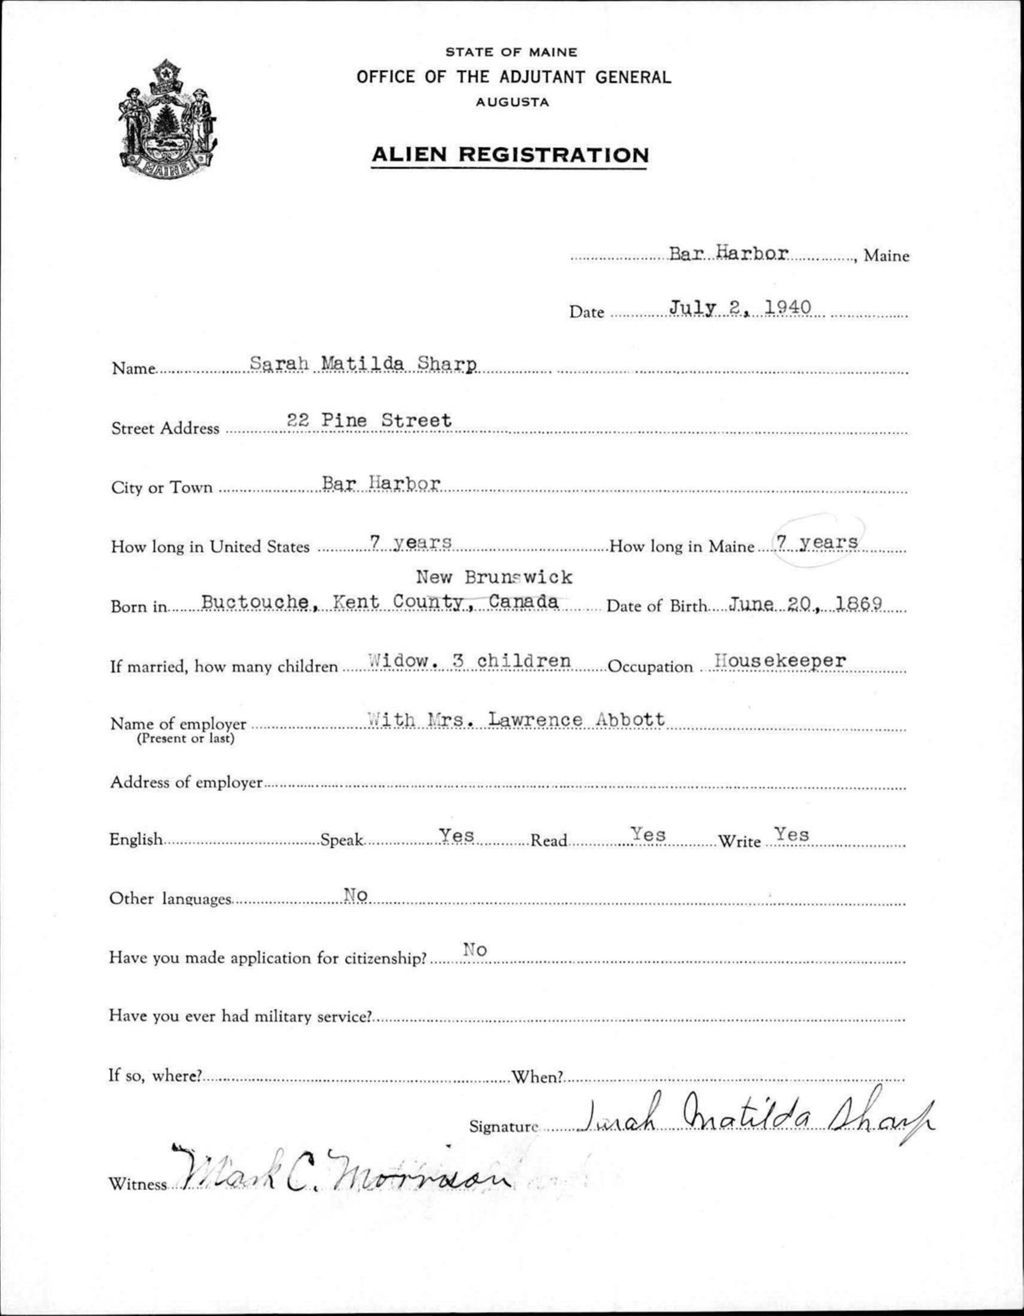 STATE OF MAINE
OFFICE OF THE ADJUTANT GENERAL
AUGUSTA
ALIEN REGISTRATION
MAINE
Bar Harbor, Maine
Date July 2, 1940
Name Sarah Matilda Sharp
Street Address 22 Pine Street
City or Town Bar Harbor
How long in United States 7 years How long in Maine 7 years
New Brunswick
Born in Buctouche, Kent County, Canada Date of Birth June 20, 1869
If married, how many children Widow. 3 children Occupation Housekeeper
Name of employer With Mrs. Lawrence Abbott
(Present or last)
Address of employer
English Speak Yes Read Yes Write Yes
Other languages No
Have you made application for citizenship? No
Have you ever had military service?
If so, where? When?
Signature Sarah Matilda Sharp
Witness Mark C. Morrison